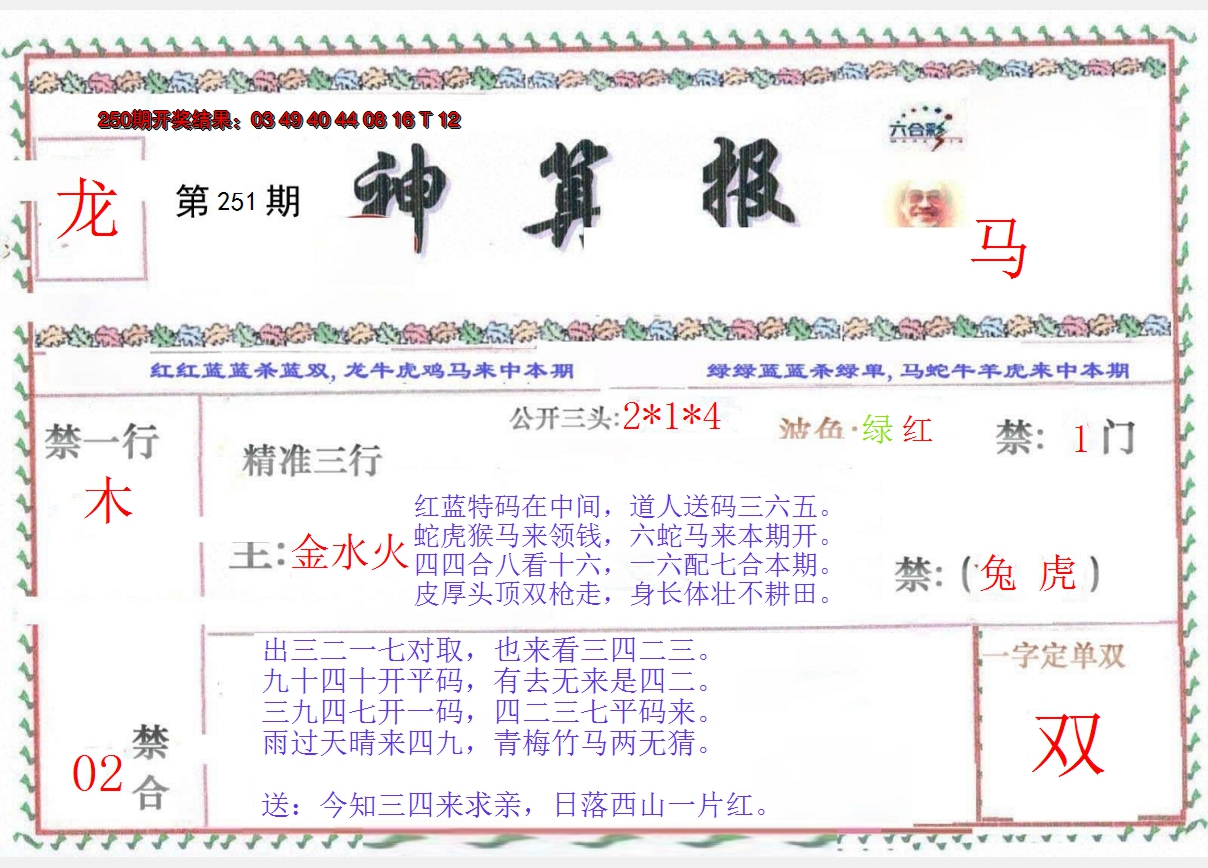 250期开奖结果：03 49 40 44 08 16 T 12
六合彩
龙
第 251 期
神算报
马
红红蓝蓝杀蓝双,龙牛虎鸡马来中本期
绿绿蓝蓝杀绿单,马蛇牛羊虎来中本期
公开三头:2*1*4
波色·绿 红
禁：1门
禁一行
木
精准三行
主:金水火
红蓝特码在中间，道人送码三六五。
蛇虎猴马来领钱，六蛇马来本期开。
四四合八看十六，一六配七合本期。
皮厚头顶双枪走，身长体壮不耕田。
禁:(兔 虎)
出三二一七对取，也来看三四二三。
九十四十开平码，有去无来是四二。
三九四七开一码，四二三七平码来。
雨过天晴来四九，青梅竹马两无猜。
送：今知三四来求亲，日落西山一片红。
02
禁合
一字定单双
双